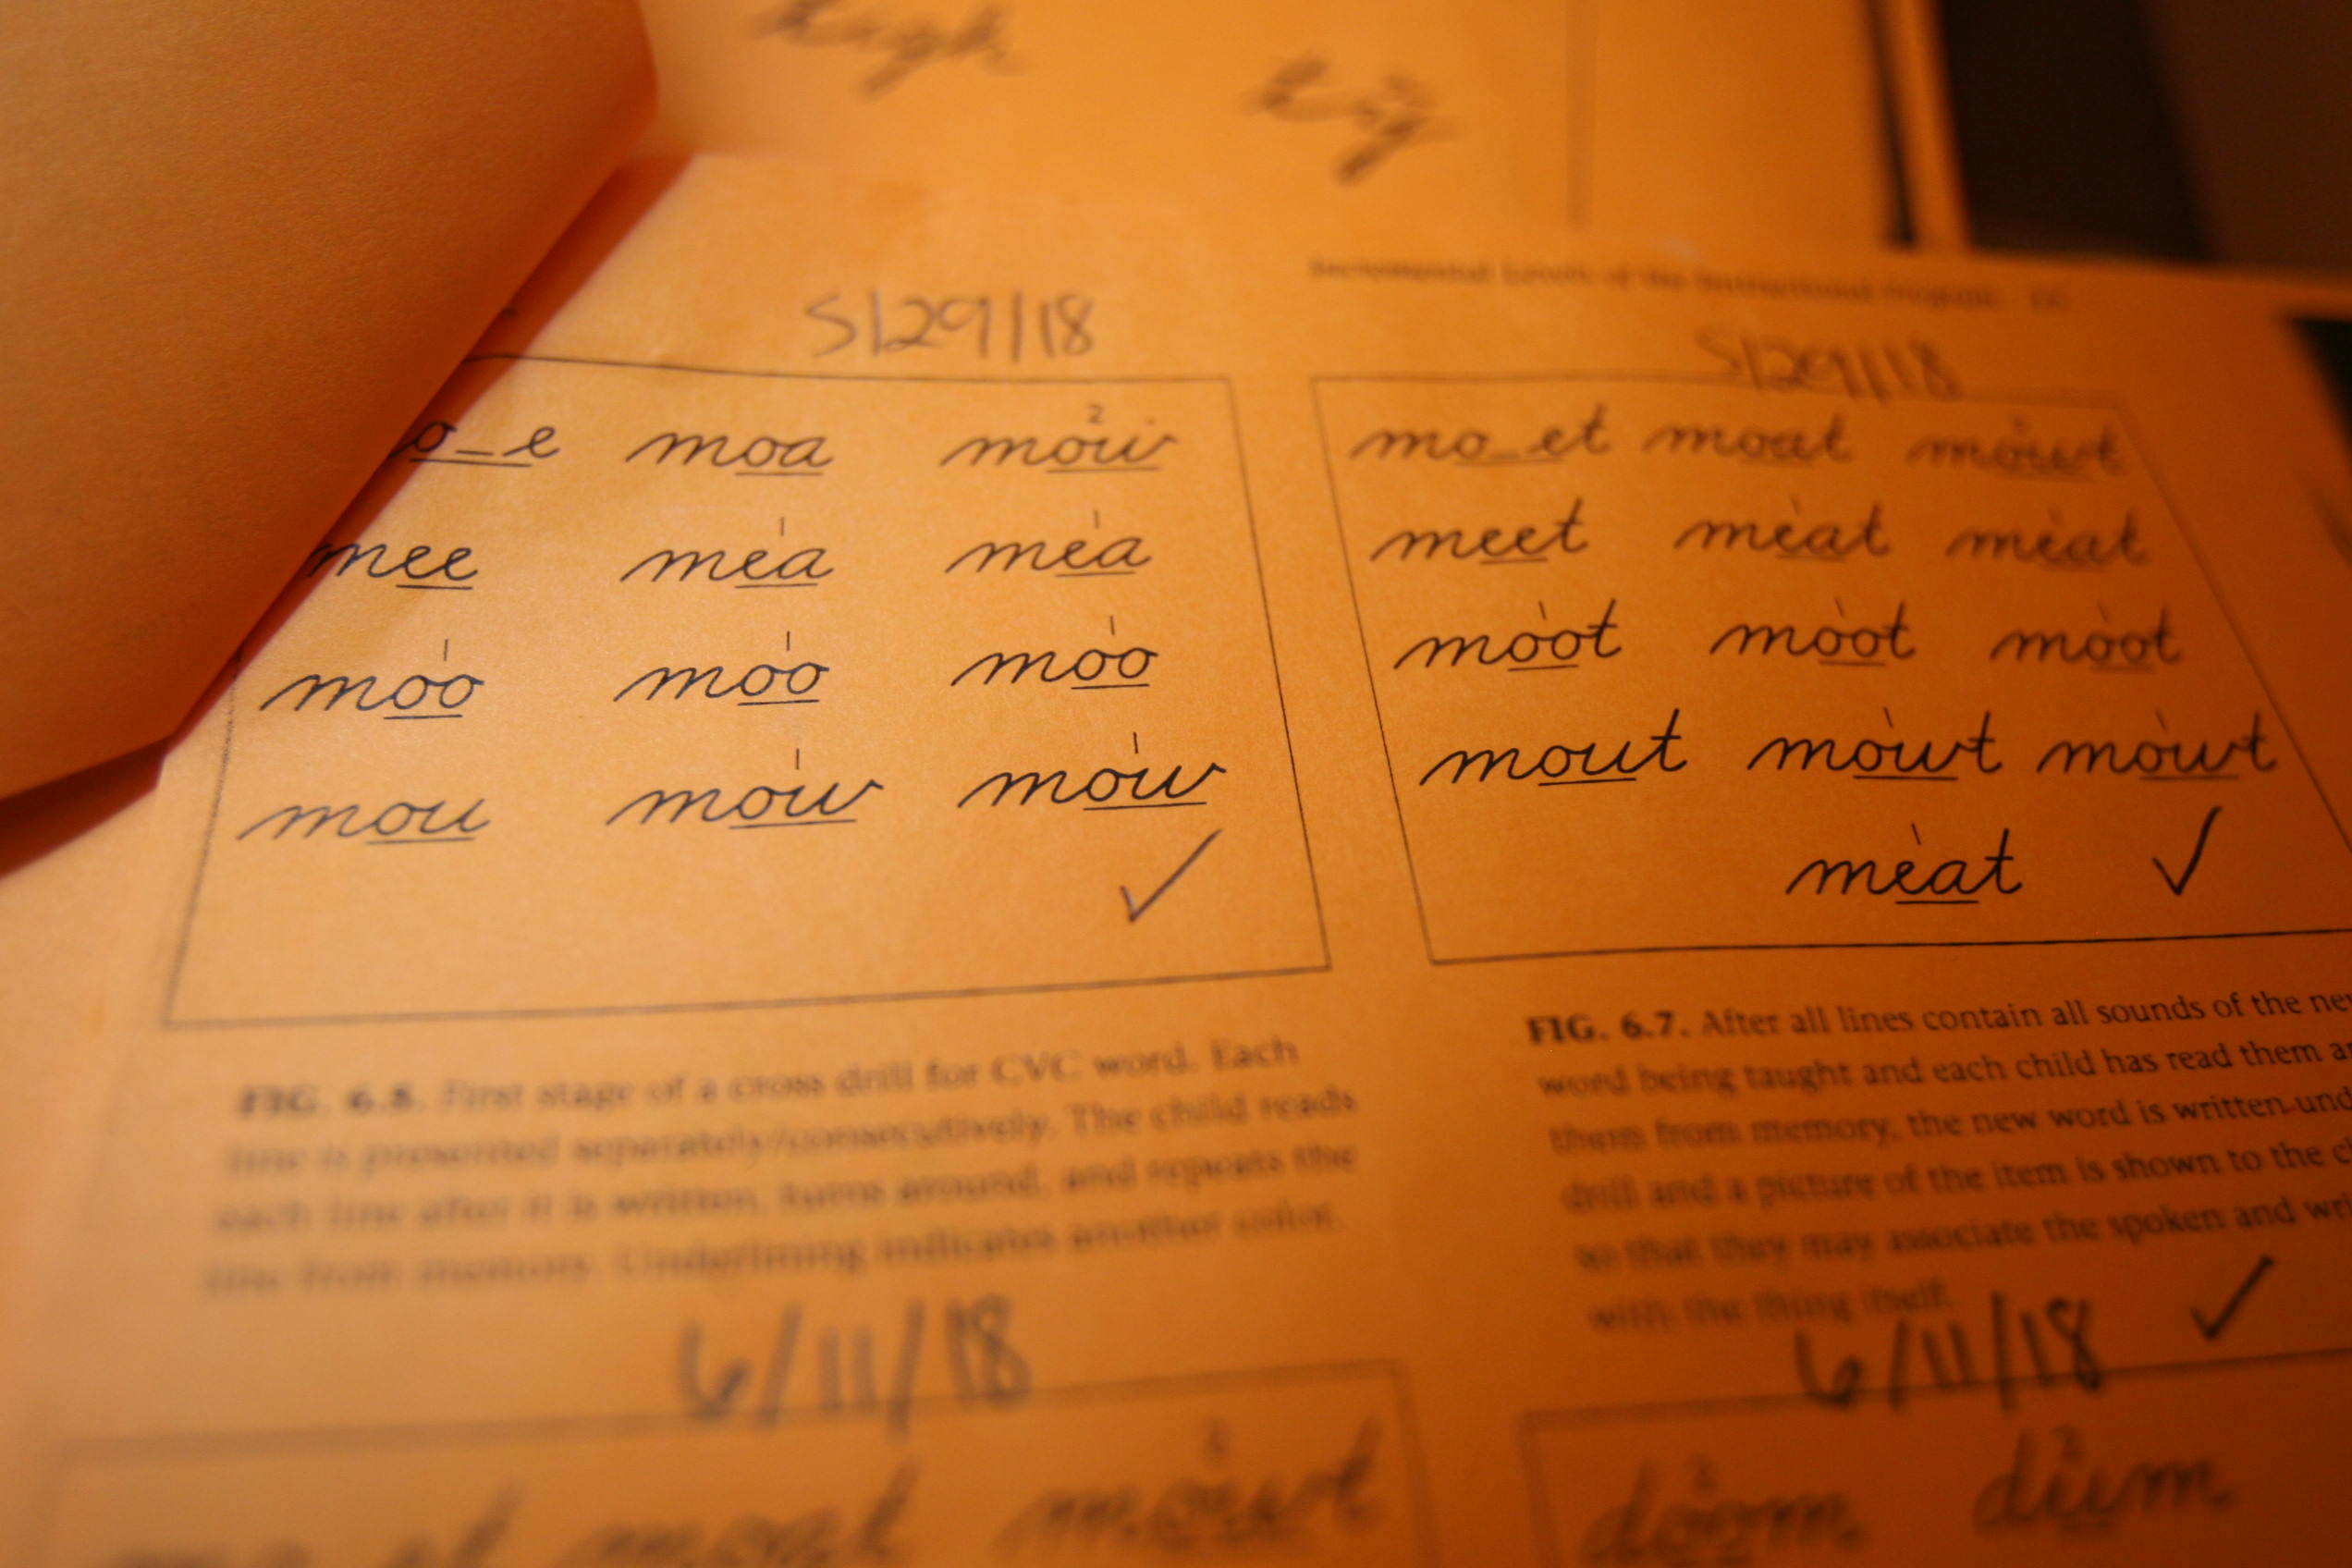 high big
5/29/18
5/29/18
Incremental Levels of the Instructional Program
o_e moa mow
2
mee mea mea
ı ı
moo moo moo
ı ı ı
mou mow mow
ı ı
✓
mo_et moat mowt
2
meet meat meat
ı ı
moot moot moot
ı ı ı
mout mowt mowt
ı ı
meat ✓
ı
FIG. 6.8. First stage of a cross drill for CVC word. Each
line is presented separately/consecutively. The child reads
each line after it is written, turns around, and repeats the
line from memory. Underlining indicates another color.
FIG. 6.7. After all lines contain all sounds of the new
word being taught and each child has read them an
them from memory, the new word is written und
drill and a picture of the item is shown to the c
so that they may associate the spoken and wri
with the thing itself.
✓
6/11/18
6/11/18
et moat mowt
2
doom dum
2 2